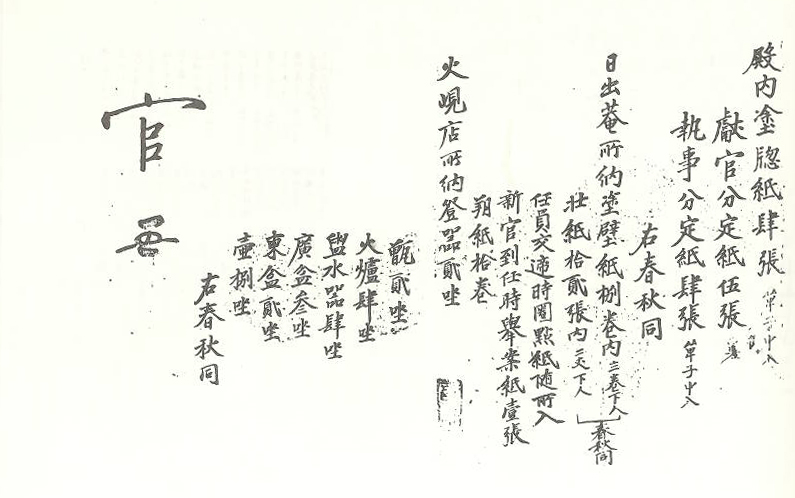 殿內塗牕紙肆張 單子中入
獻官分定紙伍張
執事分定紙肆張 單子中入
右春秋同
日出菴所納塗壁紙捌卷內 三卷下人 春秋同
壯紙拾貳張內 下人
任員交遞時圈點紙隨所入
新官到任時擧案紙壹張
翔紙拾卷
火峴店所納登器貳坐
甑貳坐
火爐肆坐
盥水器肆坐
廣盆叄坐
東盆貳坐
壺捌坐
右春秋同
官